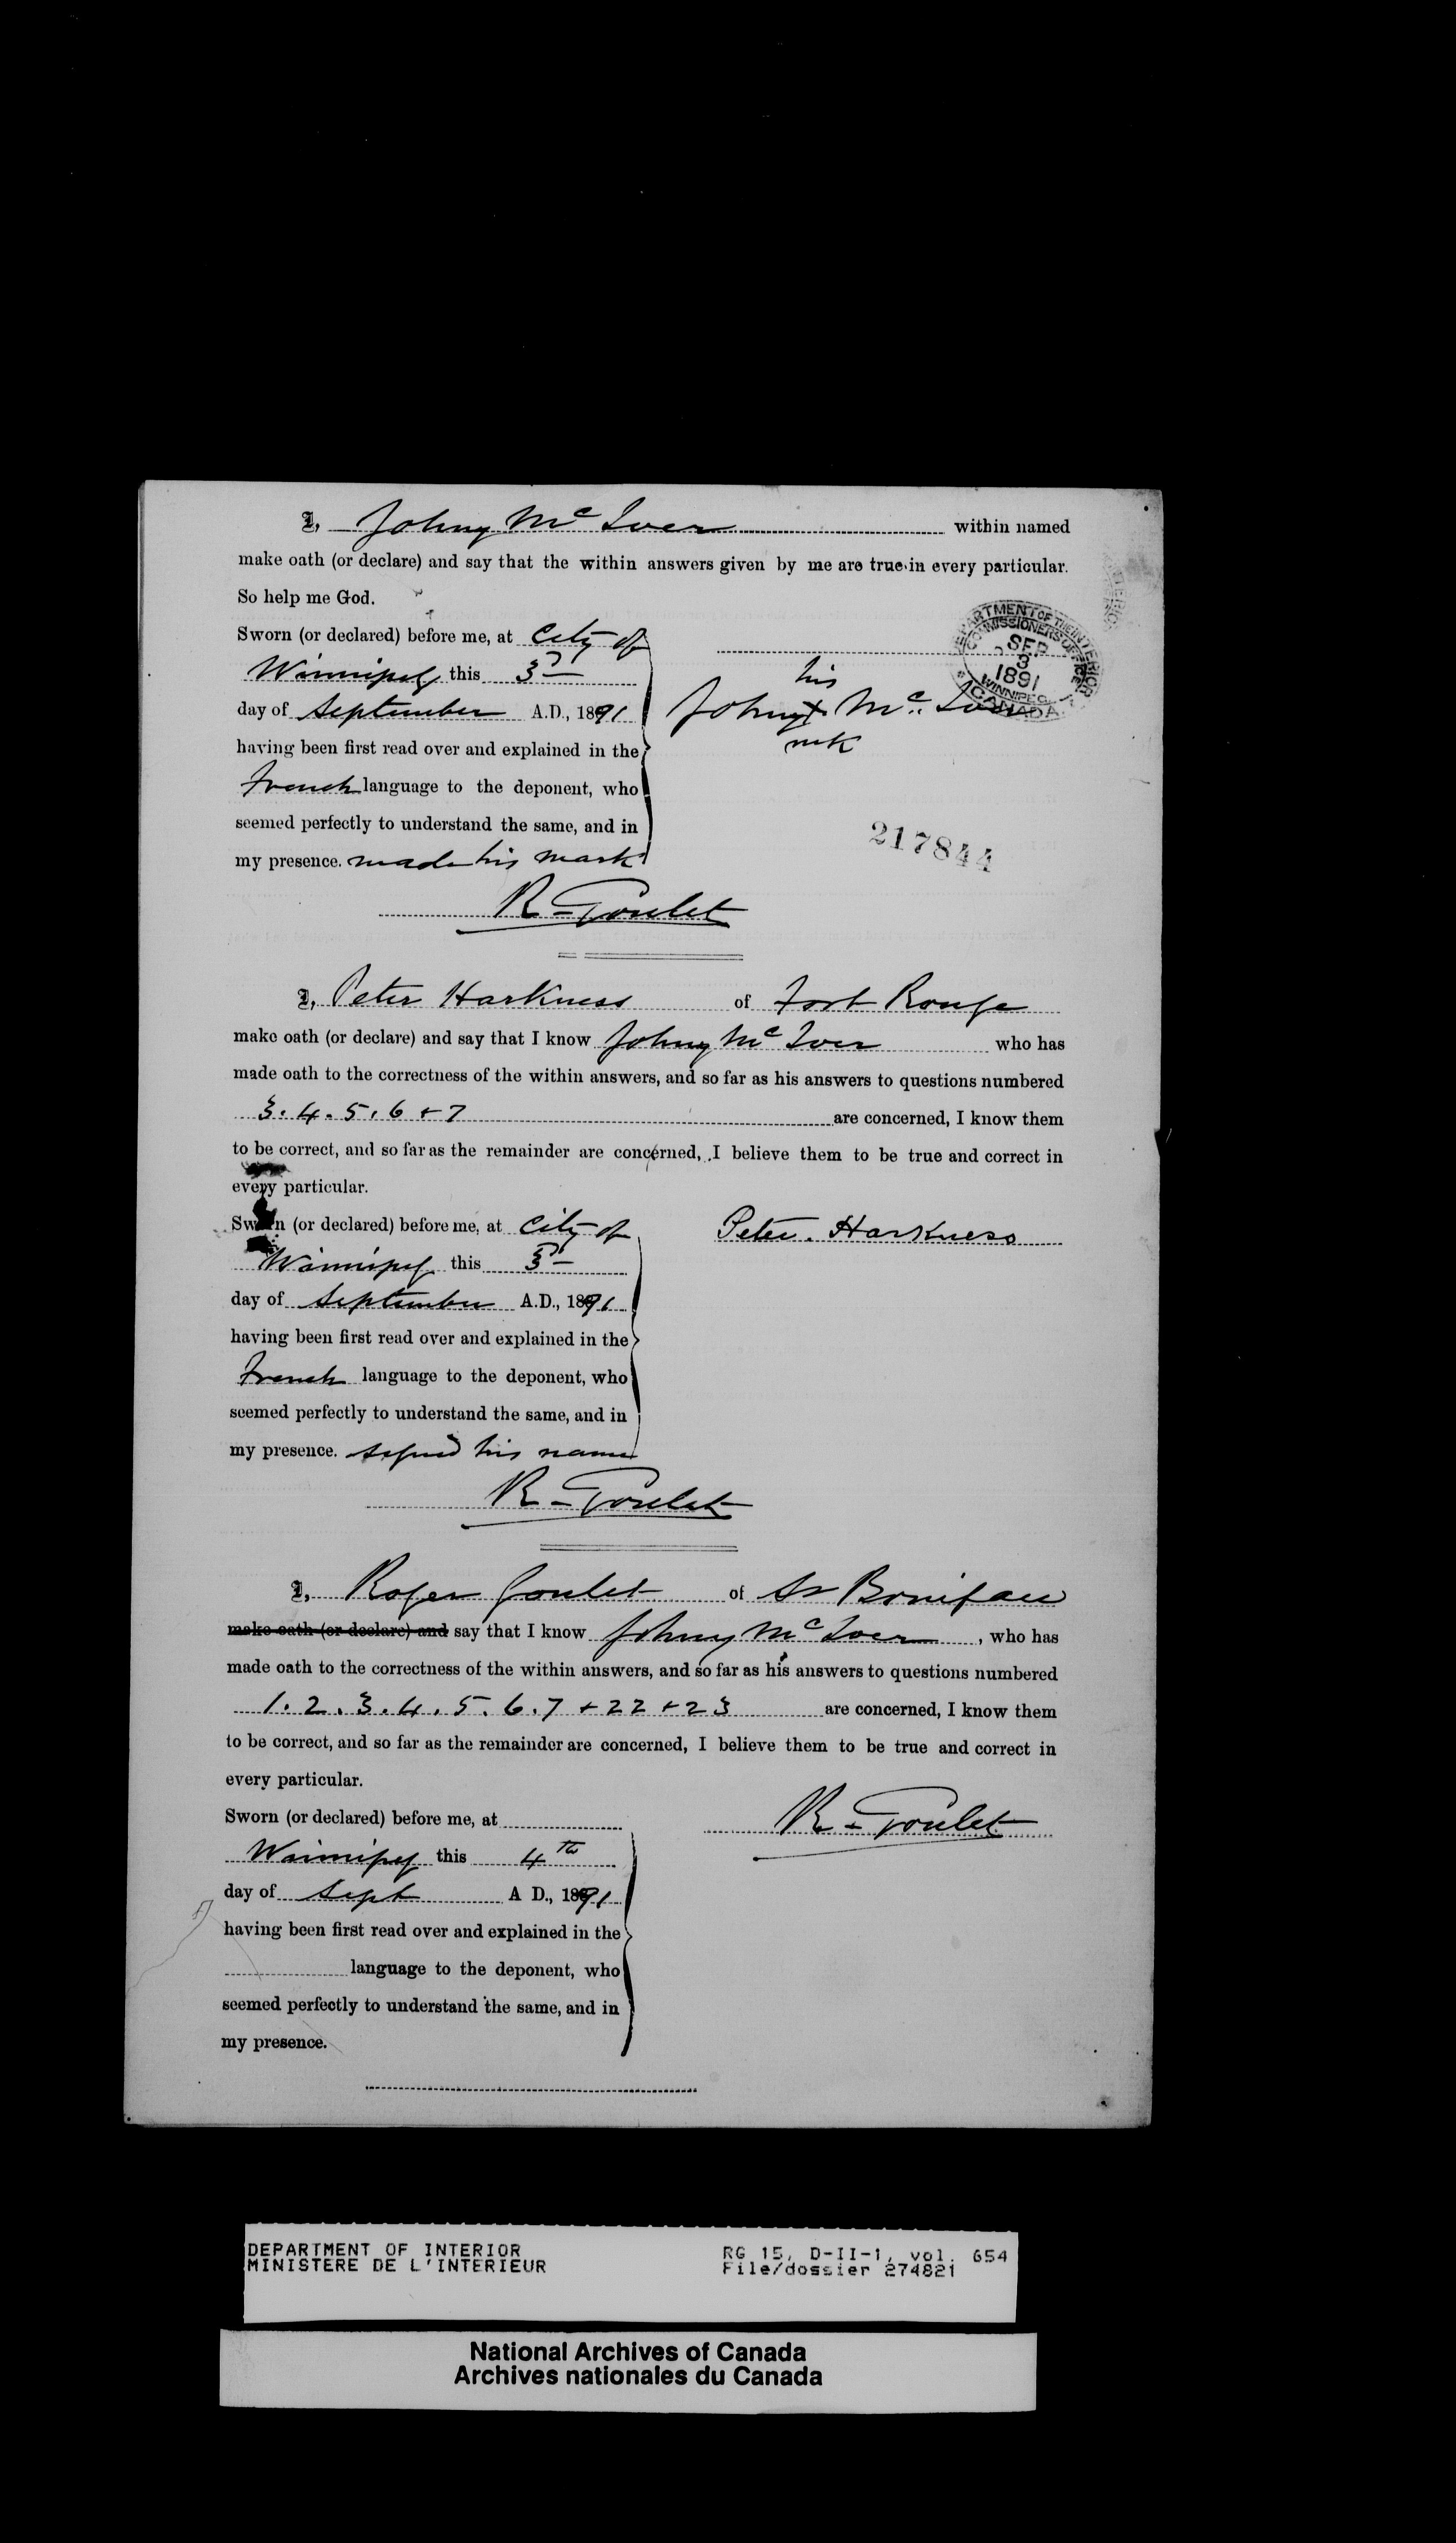 I, Johny Mc Iver within named
make oath (or declare) and say that the within answers given by me are true in every particular.
So help me God.
DEPARTMENT OF THE INTERIOR
COMMISSIONERS OFFICE
SEP
3
1891
WINNIPEG
CANADA
Sworn (or declared) before me, at City of
Winnipeg this 3D
day of September A.D., 1891
his
Johny X Mc. Iver
mk
having been first read over and explained in the
French language to the deponent, who
seemed perfectly to understand the same, and in
my presence. made his mark
217844
R-Goulet
I, Peter Harkness of Fort Rouge
make oath (or declare) and say that I know Johny Mc Iver who has
made oath to the correctness of the within answers, and so far as his answers to questions numbered
3. 4. 5. 6 + 7 are concerned, I know them
to be correct, and so far as the remainder are concerned, I believe them to be true and correct in
every particular.
Sworn (or declared) before me, at City of
Peter. Harkness
Winnipeg this 3D
day of September A.D., 1891
having been first read over and explained in the
French language to the deponent, who
seemed perfectly to understand the same, and in
my presence. signed his name
R-Goulet
I, Roger Goulet of St Boniface
make oath (or declare) and say that I know Johny Mc Iver, who has
made oath to the correctness of the within answers, and so far as his answers to questions numbered
1. 2. 3. 4. 5. 6. 7 + 22 + 23 are concerned, I know them
to be correct, and so far as the remainder are concerned, I believe them to be true and correct in
every particular.
Sworn (or declared) before me, at
R-Goulet
Winnipeg this 4th
day of Sept A D., 1891
having been first read over and explained in the
language to the deponent, who
seemed perfectly to understand the same, and in
my presence.
DEPARTMENT OF INTERIOR
MINISTERE DE L'INTERIEUR
RG 15, D-II-1, vol. 654
File/dossier 274821
National Archives of Canada
Archives nationales du Canada